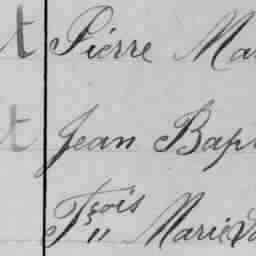 t Pierre Ma
t Jean Bap
Fçois Marie